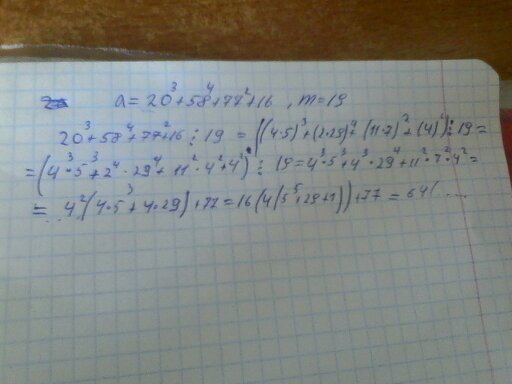 a = 20³+58⁴+77²+16 , m=19
20³+58⁴+77²+16 ⋮ 19 = ((4·5)³+(2·29)⁴+(11·7)²+(4)²) ⋮ 19 =
= (4³·5³+2⁴·29⁴+11²·4²+4²) ⋮ 19 = 4³·5³+4³·29⁴+11²·7²·4² =
= 4²(4·5³+4·29)+77 = 16(4(5⁵+29+1))+77 = 64(...